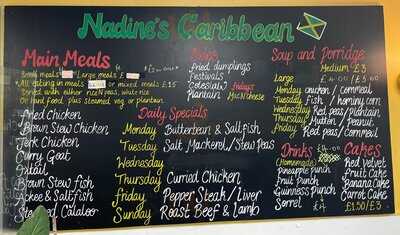 Nadine's Caribbean
Main Meals
Small meals Large meals £
All eating in meals or mixed meals £15
Served with either rice n peas, white rice
or hard food, plus steamed veg or plantain
Fried Chicken
Brown Stew Chicken
Jerk Chicken
Curry Goat
Oxtail
Brown Stew fish
Ackee & Saltfish
Steamed Calaloo
Sides
fried dumplings
festivals
Coleslaw
Plantain
fridays
Mac N cheese
Daily Specials
Monday Butterbean & Saltfish
Tuesday Salt Mackerel/Stew Peas
Wednesday
Thursday Curried Chicken
Friday Pepper Steak/Liver
Sunday Roast Beef & lamb
Soup and Porridge
Medium £3
Large £4.00
Monday chicken / cornmeal
Tuesday fish / hominy corn
Wednesday Red peas/plantain
Thursday Mutton / Peanut
Friday Red peas/cornmeal
Drinks
(Homemade)
Pineapple punch
Fruit punch
Guinness punch
Sorrel £4
Cakes
Red Velvet
Fruit Cake
Banana Cake
Carrot Cake
£1.50/£3